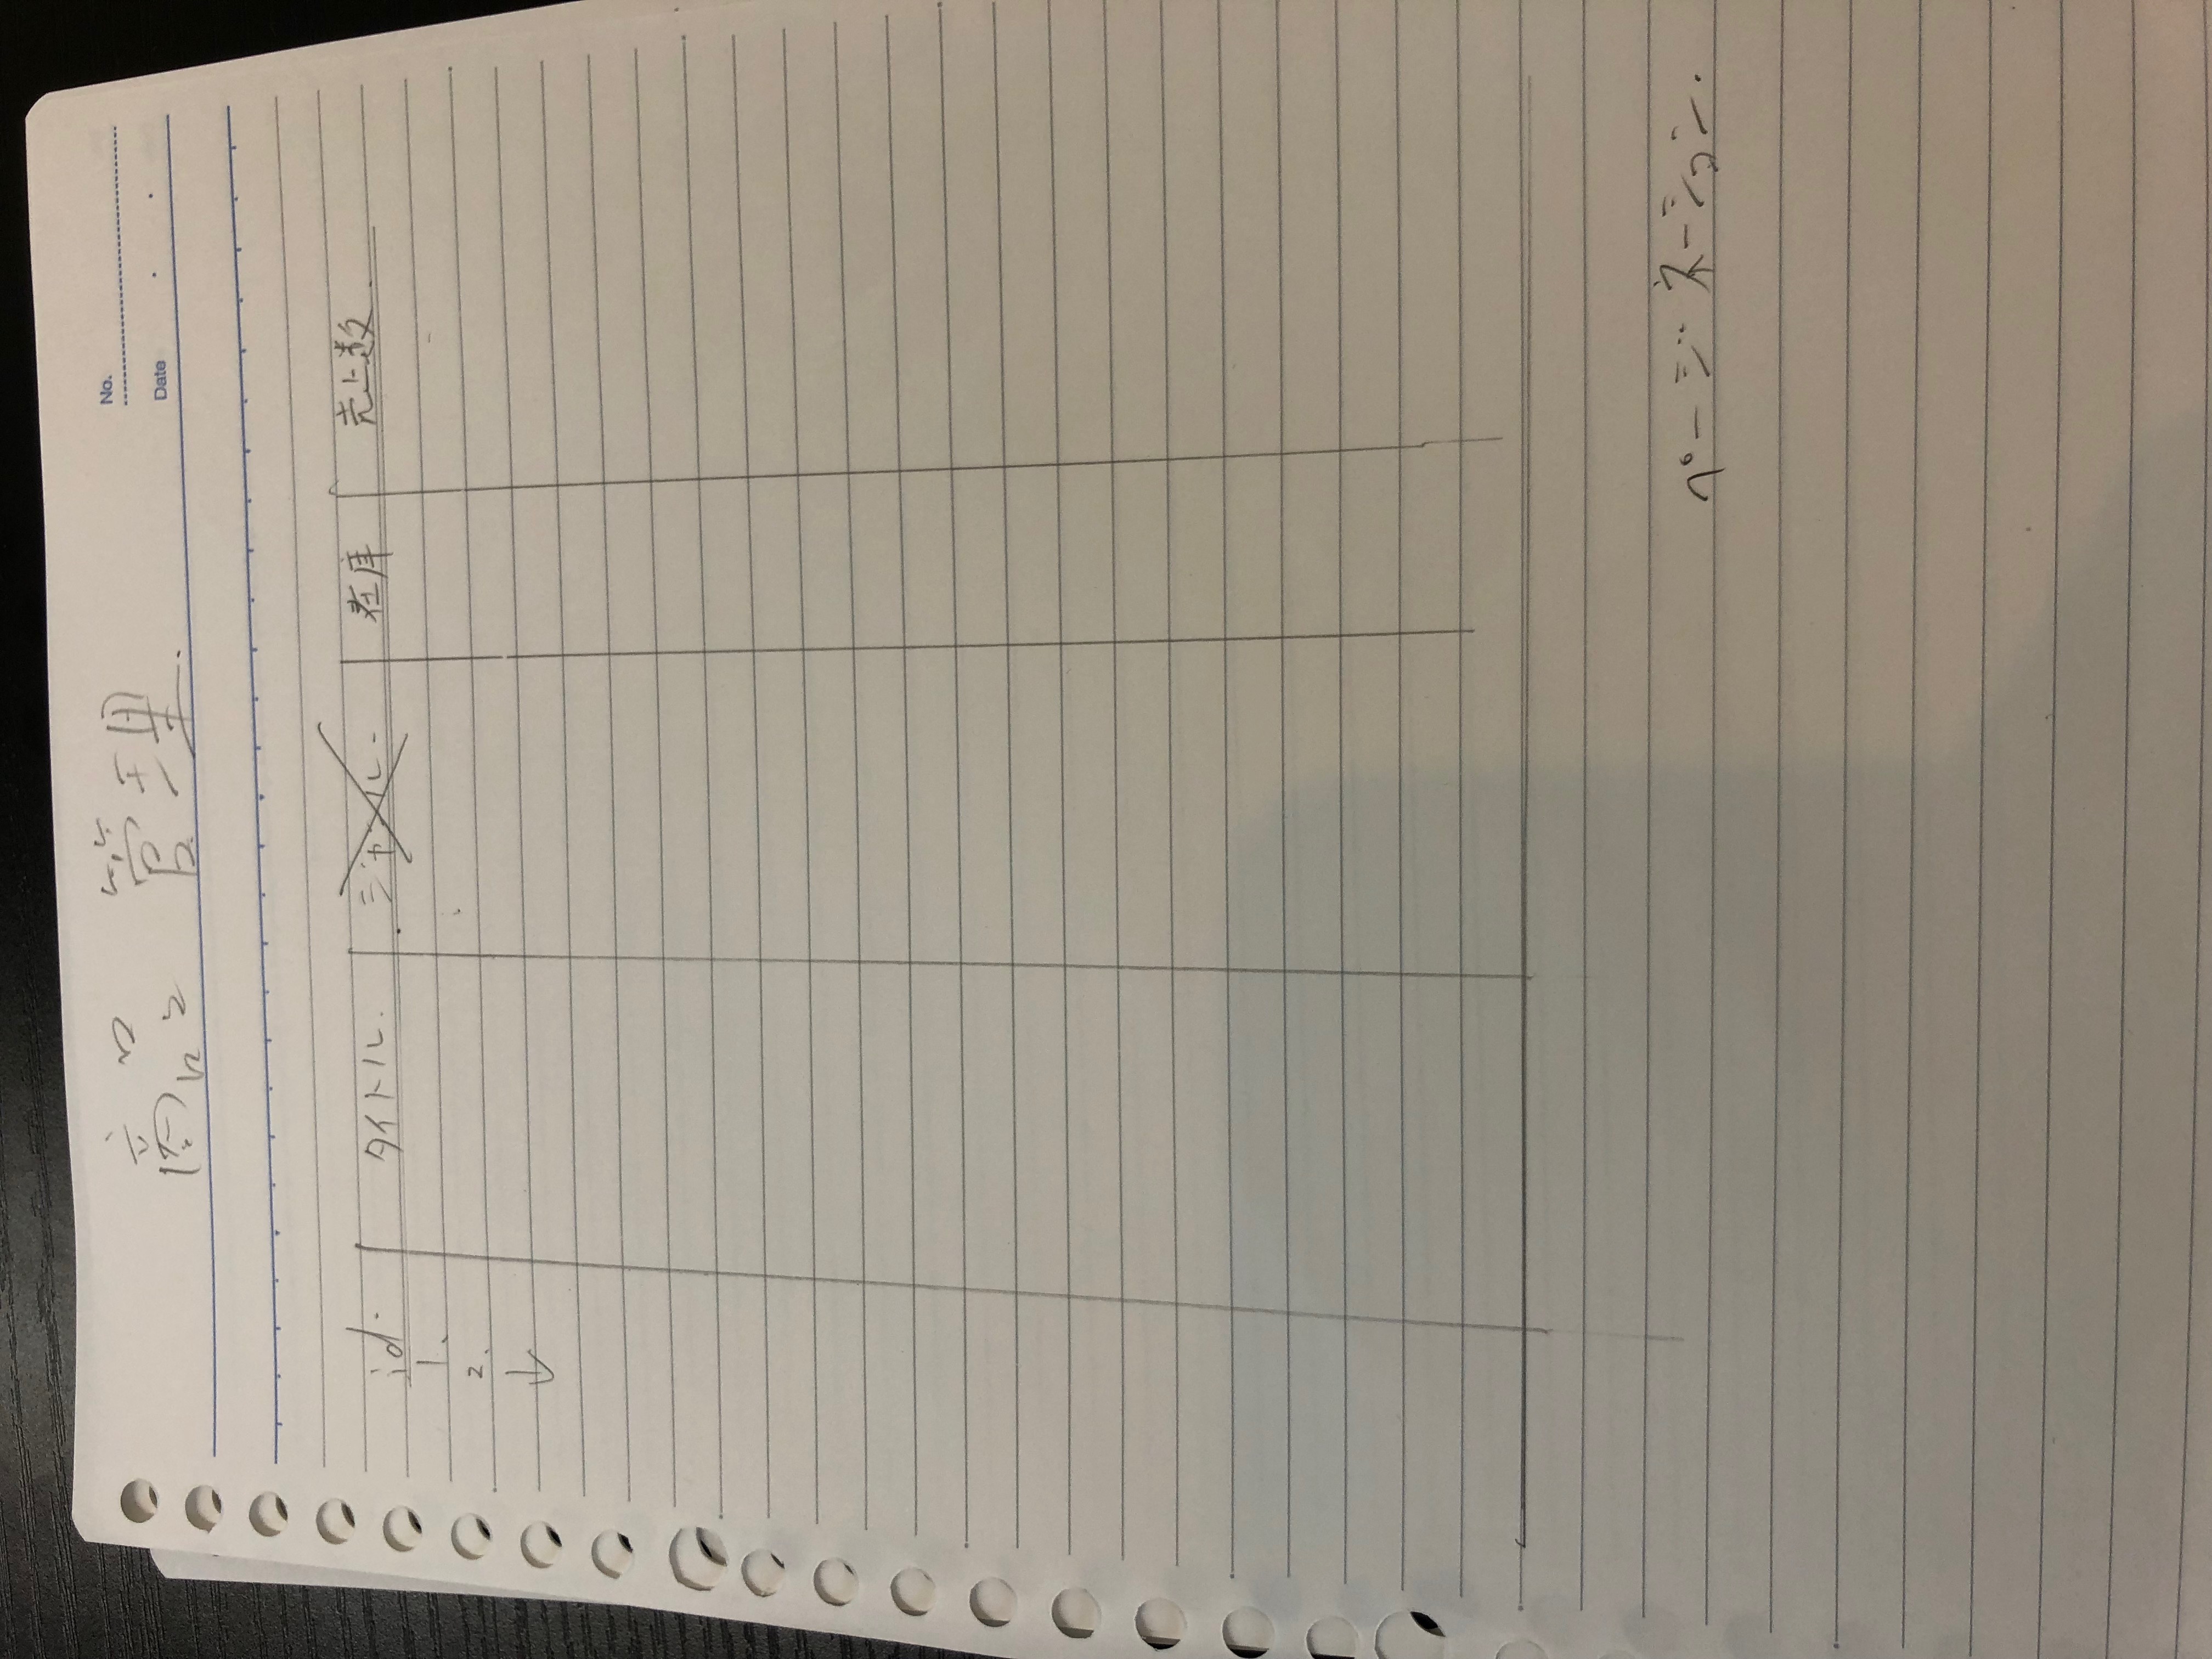 商品 管理.
No.
Date
id. タイトル. 在庫 売上数.
1.
2.
ページネーション.